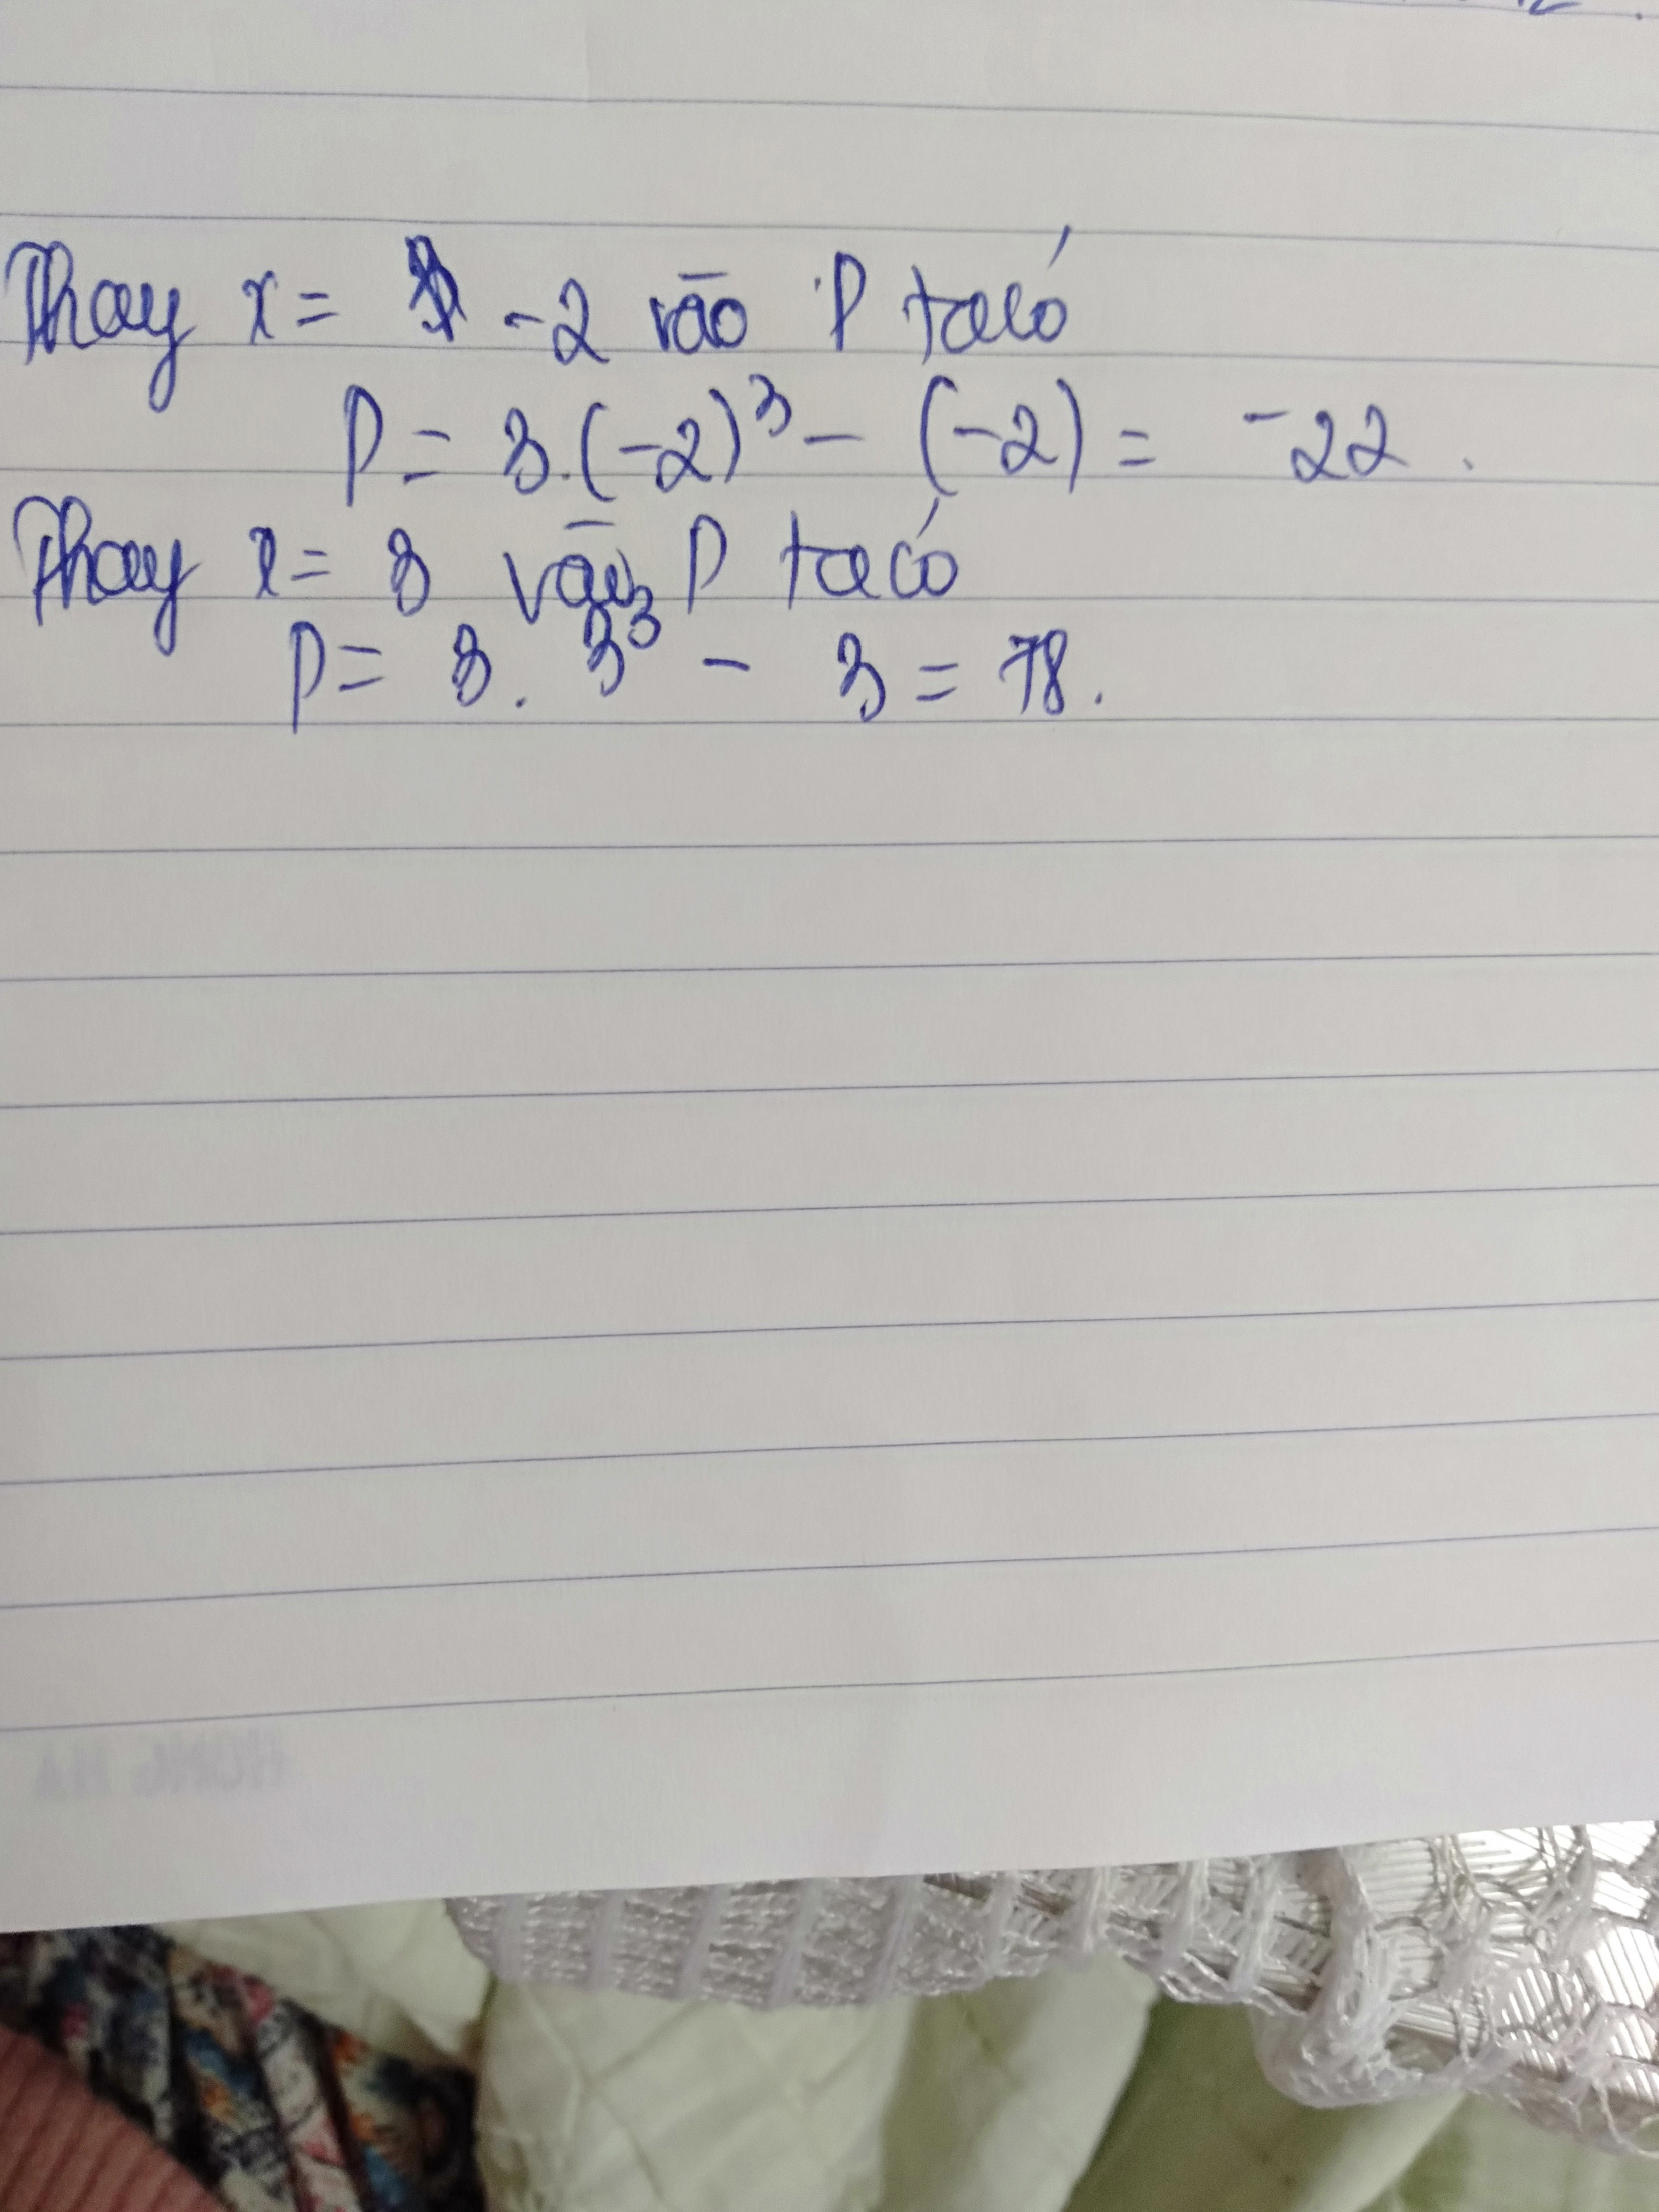 Thay x = -2 vào P ta có
P = 3.(-2)³ - (-2) = -22.
Thay x = 3 vào P ta có
P = 3. 3³ - 3 = 78.